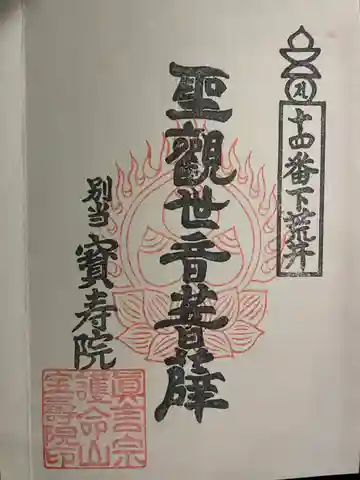 十四番下荒井
聖觀世音菩薩
別当 寳寿院
眞言宗
護命山
寳壽院印